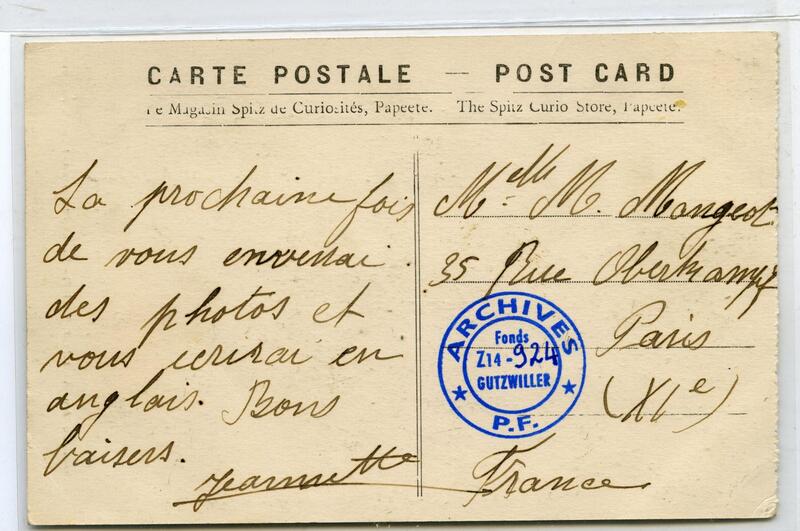 CARTE POSTALE — POST CARD
Le Magasin Spitz de Curiosités, Papeete. The Spitz Curio Store, Papeete.
La prochaine fois
de vous enverrai
des photos et
vous ecrirai en
anglais. Bons
baisers.
Jeannette
Melle M. Mangeot
35 Rue Oberkampf
Paris
(XIe)
France
ARCHIVES
Fonds
Z14-924
GUTZWILLER
P.F.